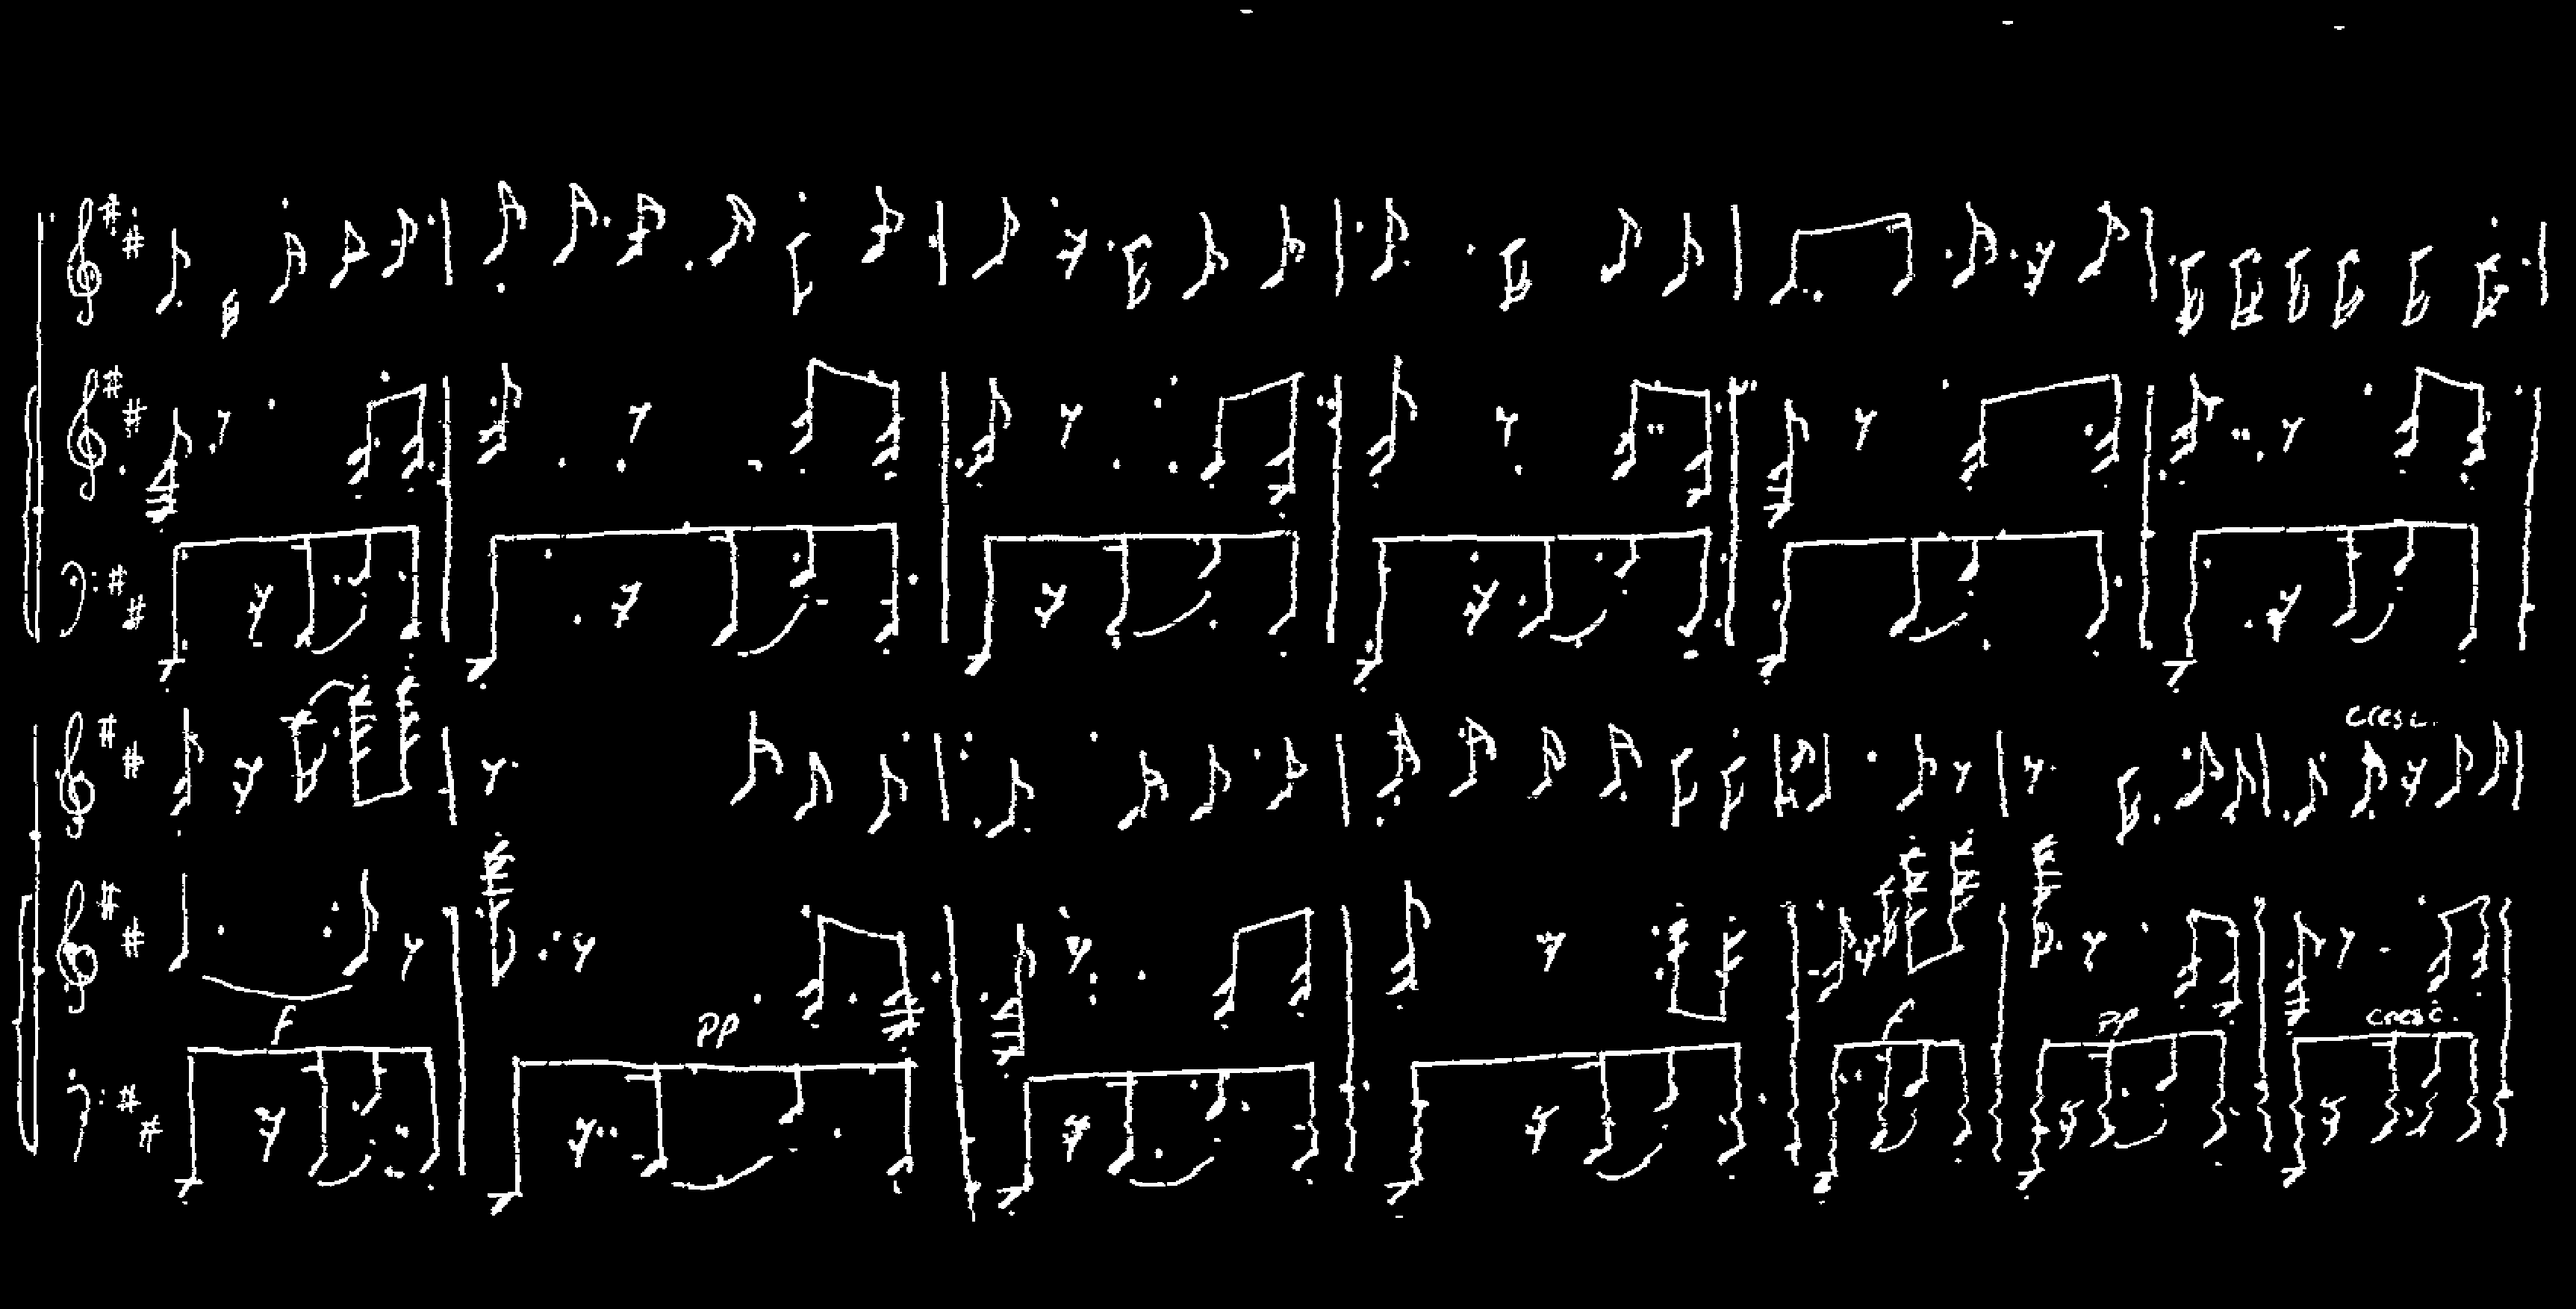 cresc.
F
pp
F
pp
cresc.